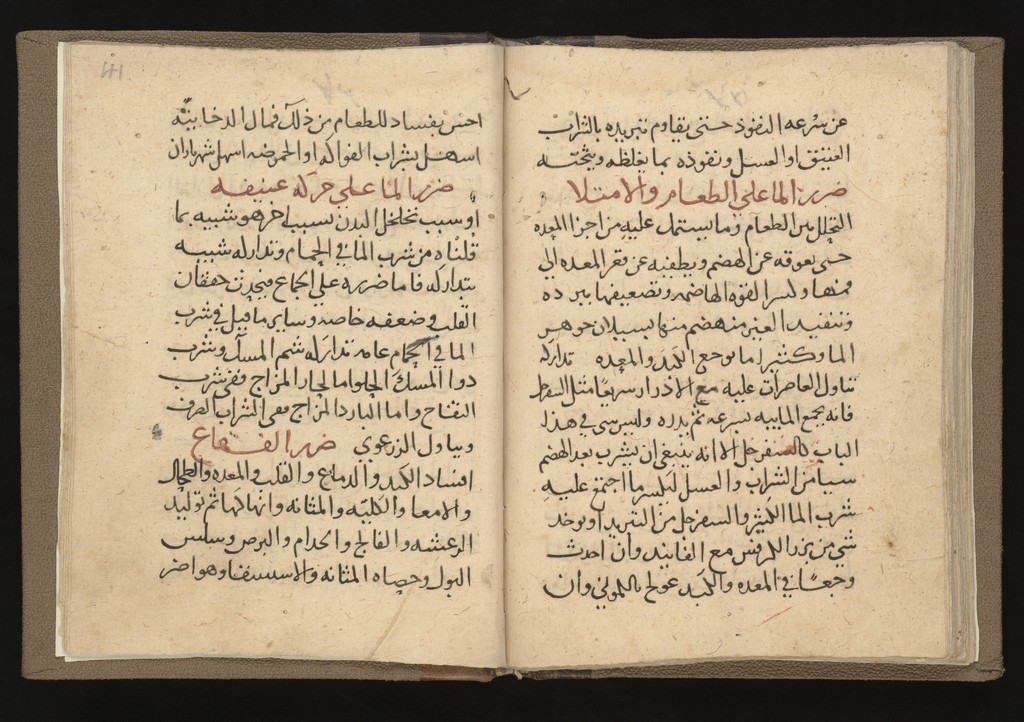 عن سرعه النفوذ حتى يقاوم تبريده بالشراب
العتيق او العسل ونفوذه بما يغلظه ويثخنه
ضرر الما على الطعام والامتلا
التخلل بين الطعام وما يشتمل عليه من اجزا المعده
حتى يعوقه عن الهضم ويطفيه عن قعر المعده الى
فمها ولسر القوه الهاضمه وتضعيفها ببرده
وتنفيد الغير منهضم منها بسيلان جوهر
الما وكثيرا ما توجع الكبد والمعده تداركه
تناول العاصرات عليه مع الادرار سريعا مثل السفرجل
فانه يجمع الماييه بسرعه ثم يدره وليس شي في هذا
الباب كالسفرجل الا انه ينبغي ان يشرب بعد الهضم
شيا من الشراب والعسل ليكسر ما اجتمع عليه
شرب الما الكثير والسفرجل من التبريد او يوخد
شي من بزر الكرفس مع الفانيد وان احدث
وجعا في المعده والكبد عولج بالكموني وان
احس بفساد للطعام من ذلك فمال الى دخانيته
اسهل بشراب الفواكه او الحموضه اسهل شهرياران
ضرر الما على حركه عنيفه
او سبب تخلخل البدن لسبب اخر هو شبيه بما
قلناه من شرب الما في الحمام وتداركه شبيه
بتداركه فاما ضرره على الجماع فيحدث خفقان
القلب وضعفه خاصه وساير ما قيل في شرب
الما في الحمام عامه تداركه شم المسك وشرب
دوا المسك الحلو اما لحار المزاج ففي شرب
التفاح واما البارد المزاج ففي الشراب الصرف
وبناول الزرعوي ضرر الفقاع
افساد الكبد والدماغ والقلب والمعده والطحال
والامعا والكليه والمثانه وانهاكها ثم توليد
الرعشه والفالج والجدام والبرص وسلس
البول وحصاه المثانه والاستسقا وهو اضر